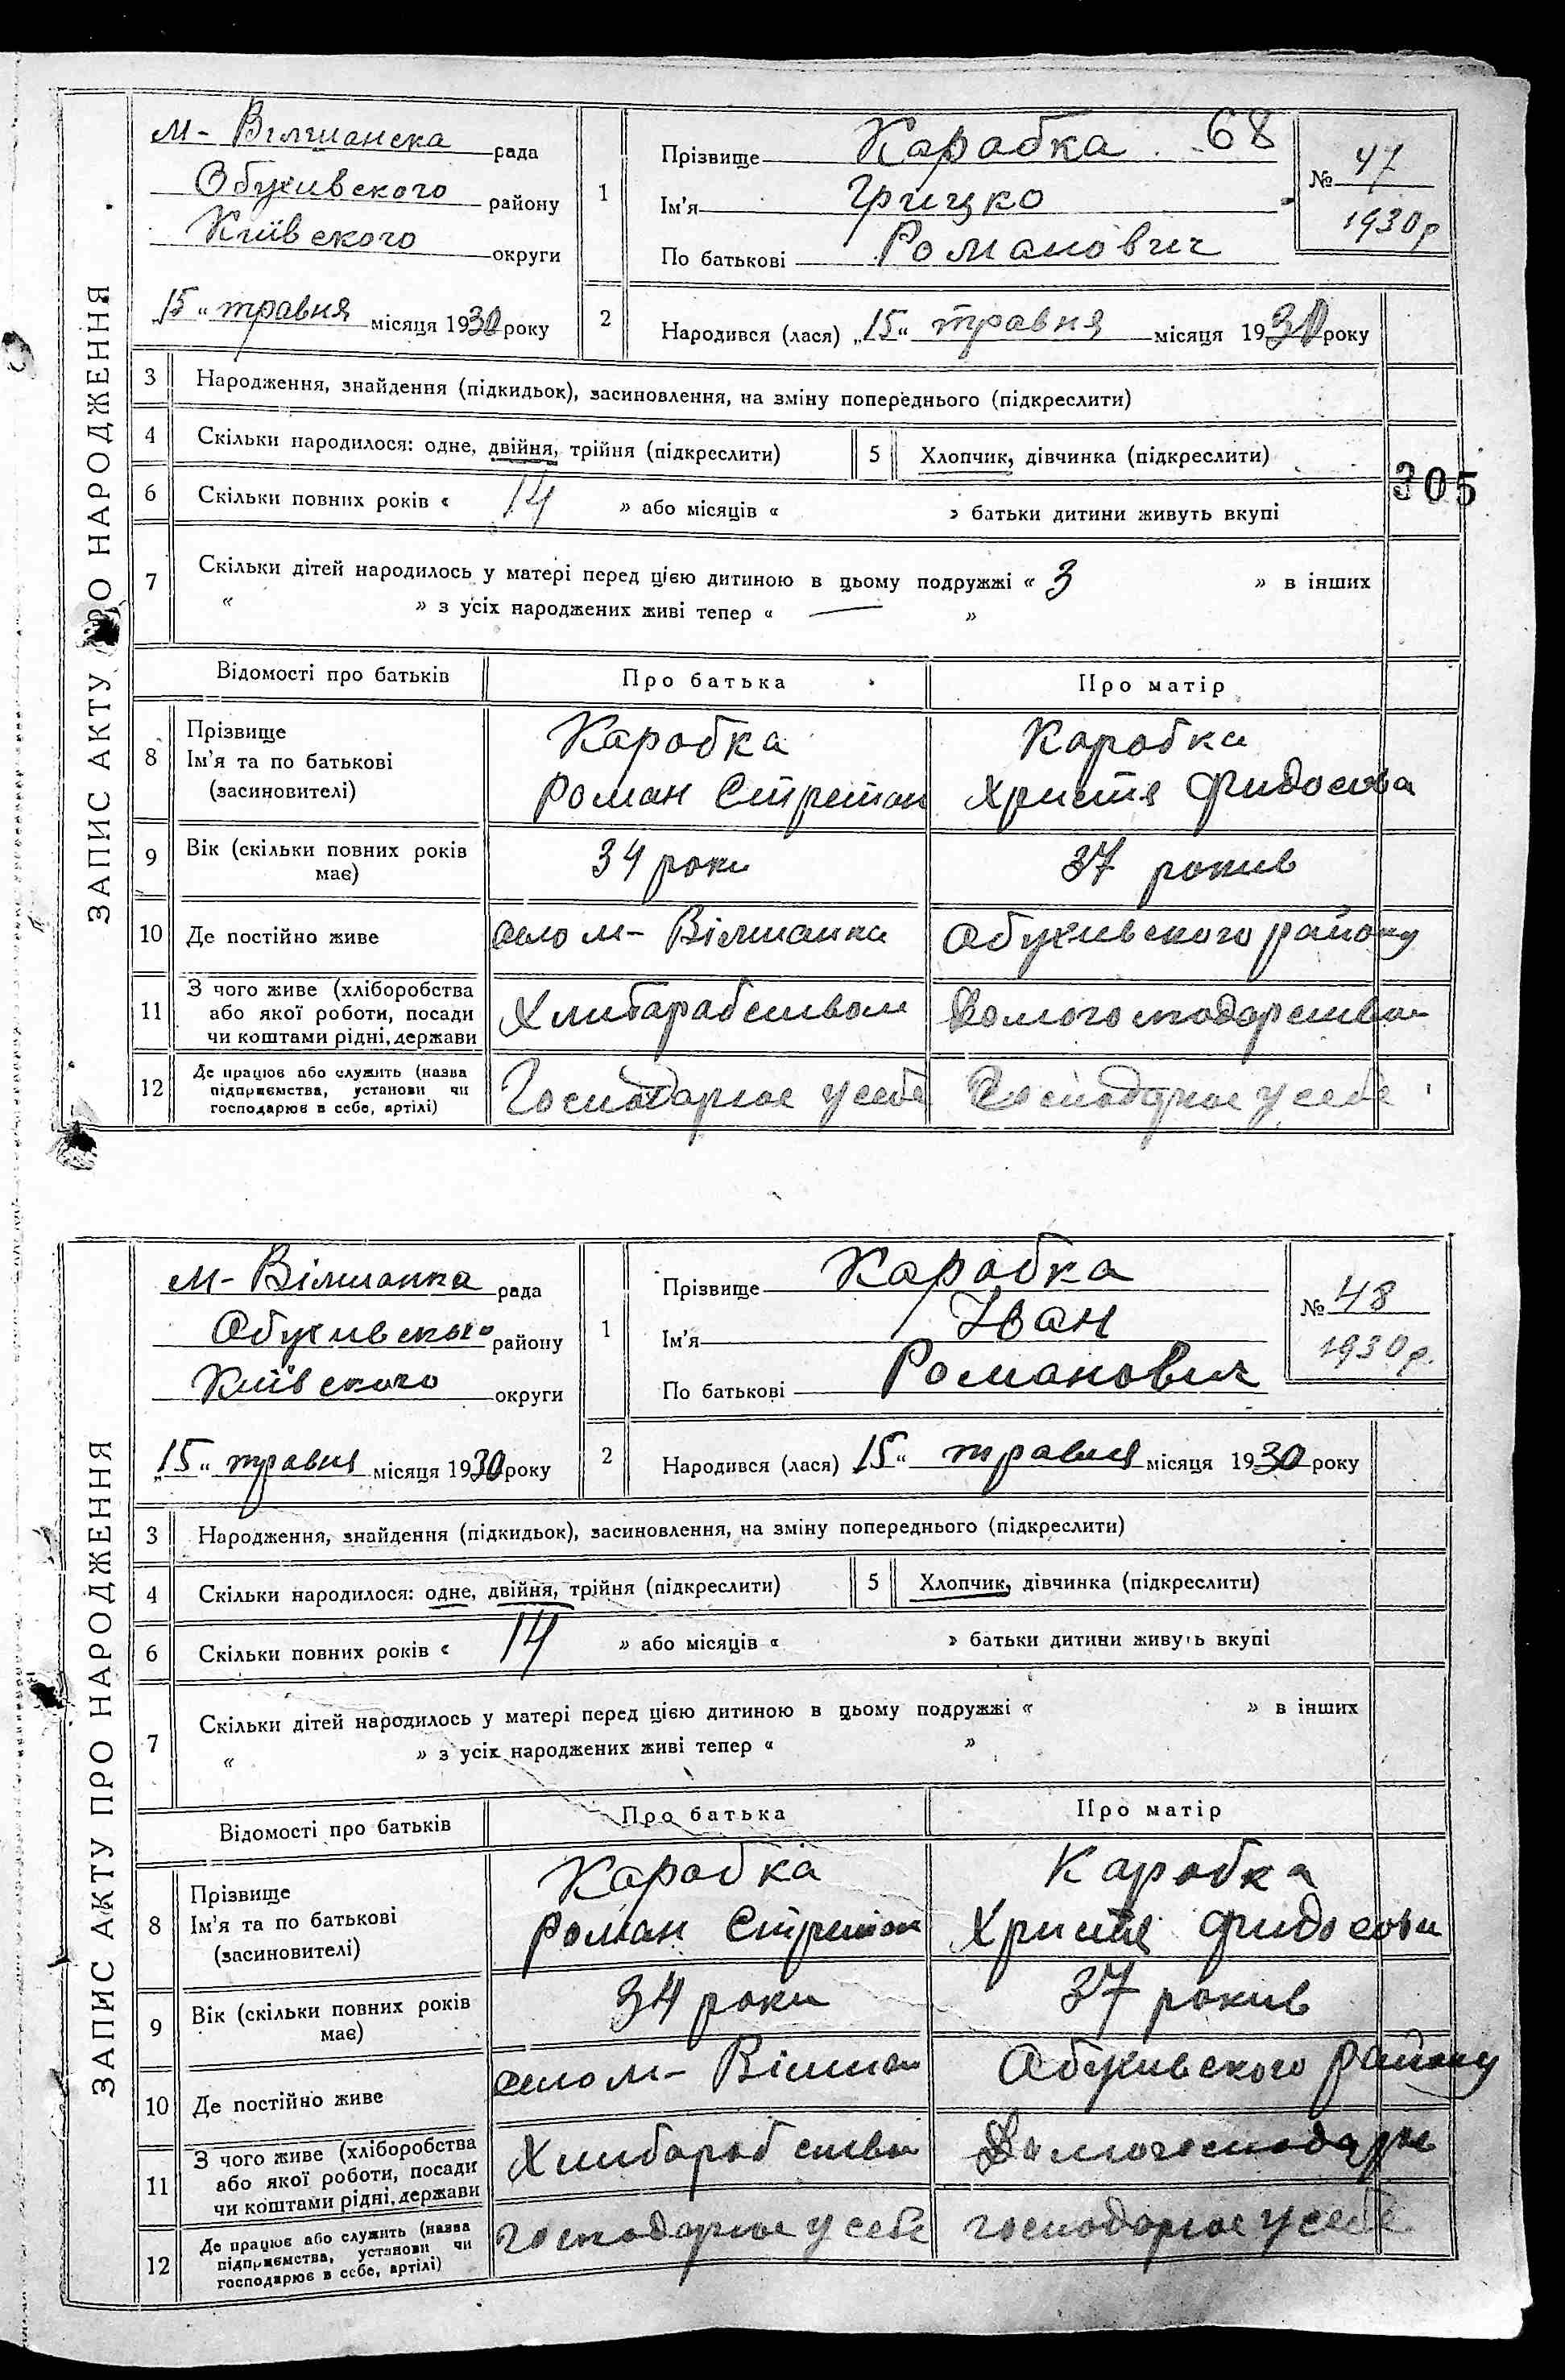 ЗАПИС АКТУ ПРО НАРОДЖЕННЯ
м- Вілшанска рада
Обухивского району
Київского округи
„15“ травня місяця 1930 року
1
Прізвище Карабка 68
Ім'я Грицко
По батькові Романович
№ 47
1930р
2
Народився (лася) „15“ травня місяця 1930 року
3 Народження, знайдення (підкидьок), засиновлення, на зміну попереднього (підкреслити)
4 Скільки народилося: одне, двійня, трійня (підкреслити)
5 Хлопчик, дівчинка (підкреслити)
305
6 Скільки повних років « 14 » або місяців « » батьки дитини живуть вкупі
7 Скільки дітей народилось у матері перед цією дитиною в цьому подружжі « 3 » в інших
« » з усіх народжених живі тепер « — »
Відомості про батьків Про батька Про матір
8 Прізвище
Ім'я та по батькові
(засиновителі)
Каробка
Роман
Каробка
Христя Фидосова
9 Вік (скільки повних років
має)
34 роки
37 рокив
10 Де постійно живе
село м- Вілшанка
Обухивского району
11 З чого живе (хліборобства
або якої роботи, посади
чи коштами рідні, держави
Хлибарабством
Домогосподарством
12 Де працює або служить (назва
підприємства, установи чи
господарює в себе, артілі)
Господарює у себе
Господарює у себе
ЗАПИС АКТУ ПРО НАРОДЖЕННЯ
м- Вілшанка рада
Обухивского району
Київского округи
„15“ травня місяця 1930 року
1
Прізвище Карабка
Ім'я Іван
По батькові Романович
№ 48
1930р.
2
Народився (лася) 15“ травня місяця 1930 року
3 Народження, знайдення (підкидьок), засиновлення, на зміну попереднього (підкреслити)
4 Скільки народилося: одне, двійня, трійня (підкреслити)
5 Хлопчик, дівчинка (підкреслити)
6 Скільки повних років « 14 » або місяців « » батьки дитини живуть вкупі
7 Скільки дітей народилось у матері перед цією дитиною в цьому подружжі « » в інших
« » з усіх народжених живі тепер « »
Відомості про батьків Про батька Про матір
8 Прізвище
Ім'я та по батькові
(засиновителі)
Каробка
Роман
Каробка
Христя Фидосови
9 Вік (скільки повних років
має)
34 роки
37 рокив
10 Де постійно живе
село м- Вілшан
Обухивского району
11 З чого живе (хліборобства
або якої роботи, посади
чи коштами рідні, держави
Хлибароб ством
Домогосподарює
12 Де працює або служить (назва
підприємства, установи чи
господарює в себе, артілі)
господарює у себе
господарює у себе